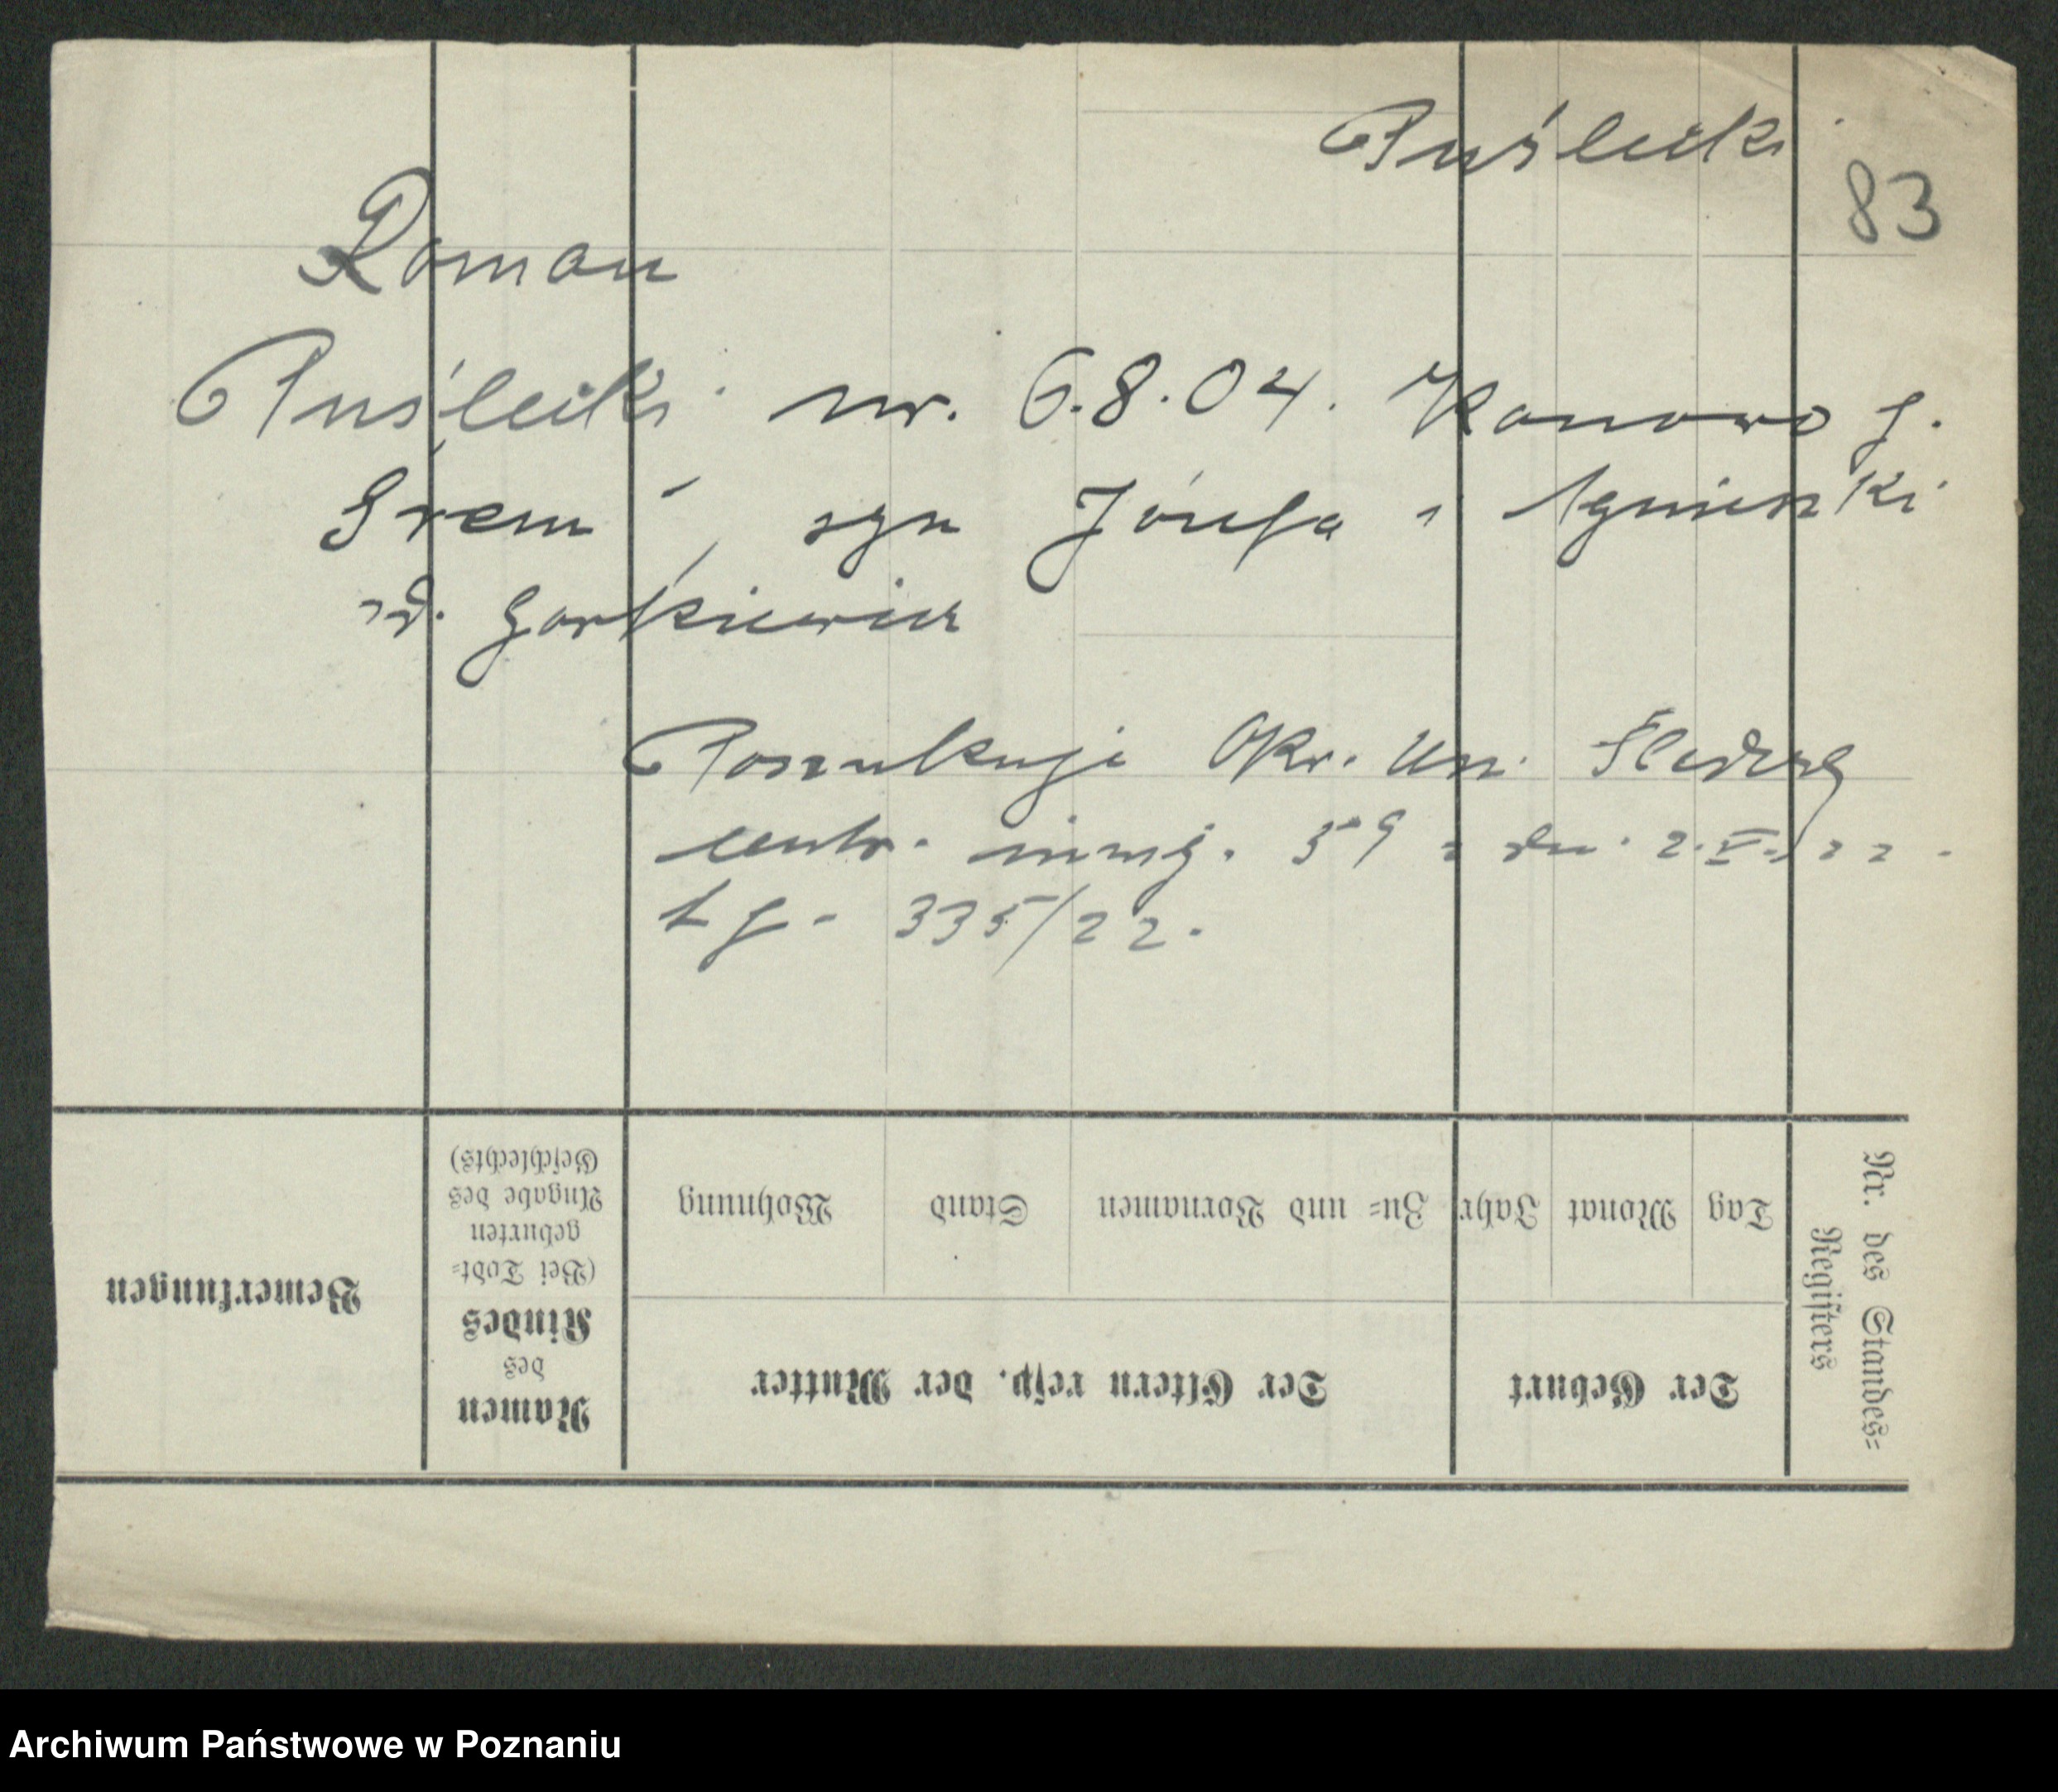 Puślecki
83
Roman
Puślecki ur. 6.8.04. Konowo p.
Śrem, syn Józefa i Agnieszki
z d. Gorkiewicz
Poszukuje Okr. Urz. Śledczy
centr. inwig. 59 z dn. 2.V.22.
L 335/22.
Nr. des Standes=
Registers
Tag Monat Jahr
Der Geburt
Zu= und Vornamen Stand Wohnung
Der Eltern resp. der Mutter
Namen
des
Kindes
(Bei Todt=
geburten
Angabe des
Geschlechts)
Bemerkungen
Archiwum Państwowe w Poznaniu